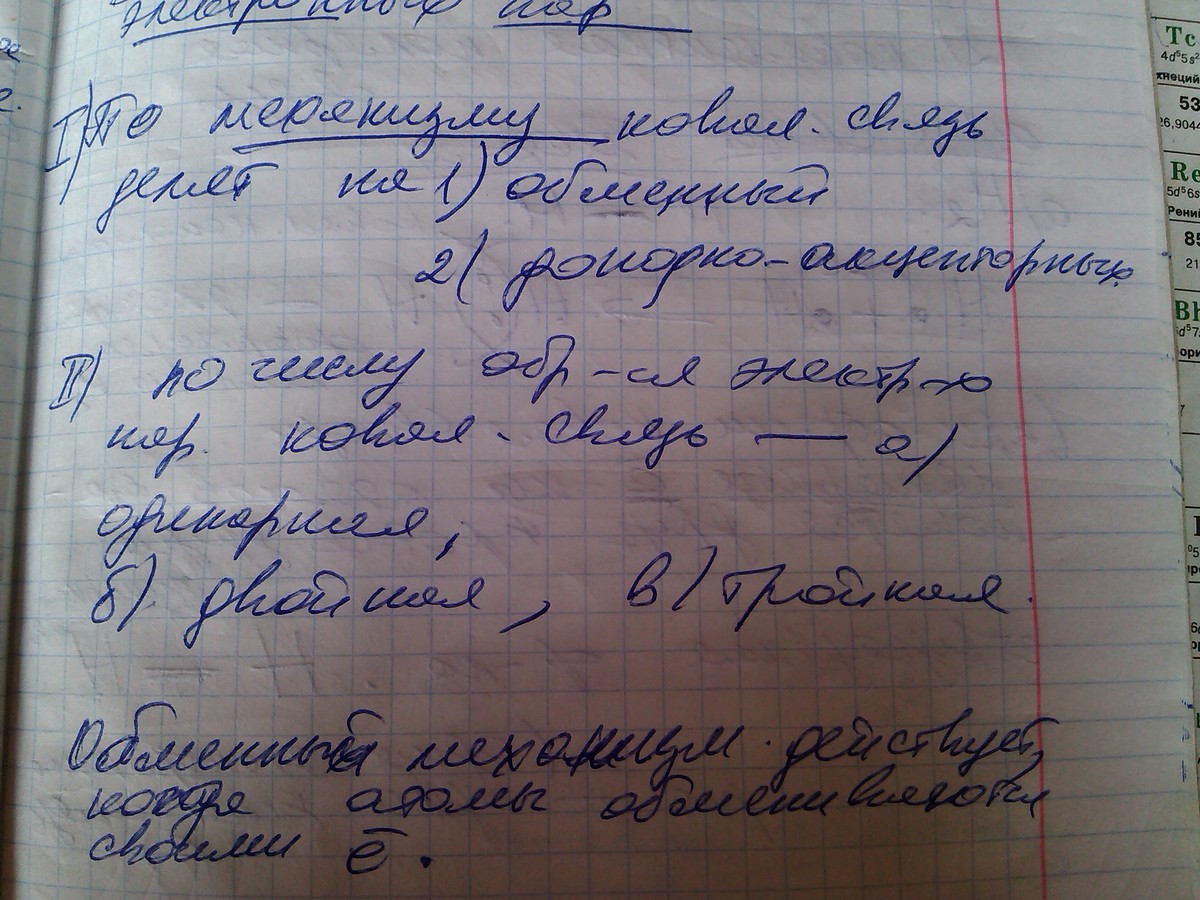 электронных пар
I) По механизму ковал. связь
делят на 1) обменный
2) донорно-акцепторный.
II) по числу обр-ся электр-х
пар. ковал. связь — а)
одинарная,
б) двойная, в) тройная.
Обменный механизм действует,
когда атомы обмениваются
своими ē.
Tc
4d⁵5s²
53
26,904
Re
5d⁵6s
Рени
85
21
Bh